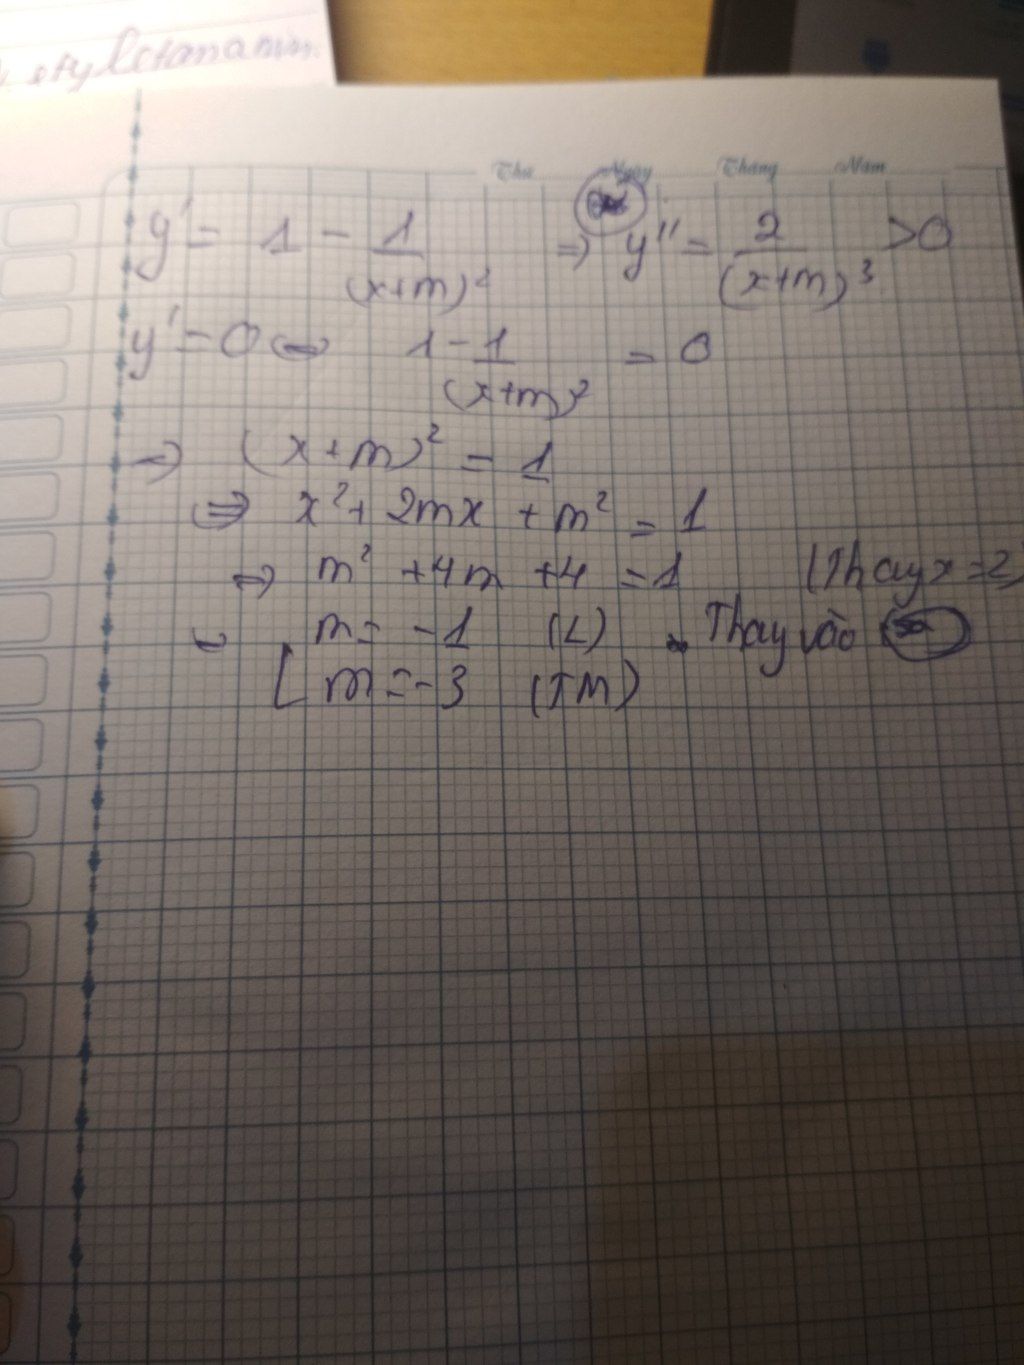 Thứ Ngày Tháng Năm
y' = 1 - 1/(x+m)² ⇒ y'' = 2/(x+m)³ >0
y' = 0 ⇔ 1 - 1/(x+m)² = 0
⇒ (x+m)² = 1
⇔ x² + 2mx + m² = 1
⇒ m² + 4m + 4 = 1 (Thay x=2)
m = -1 (L) Thay vào
[ m = -3 (TM)